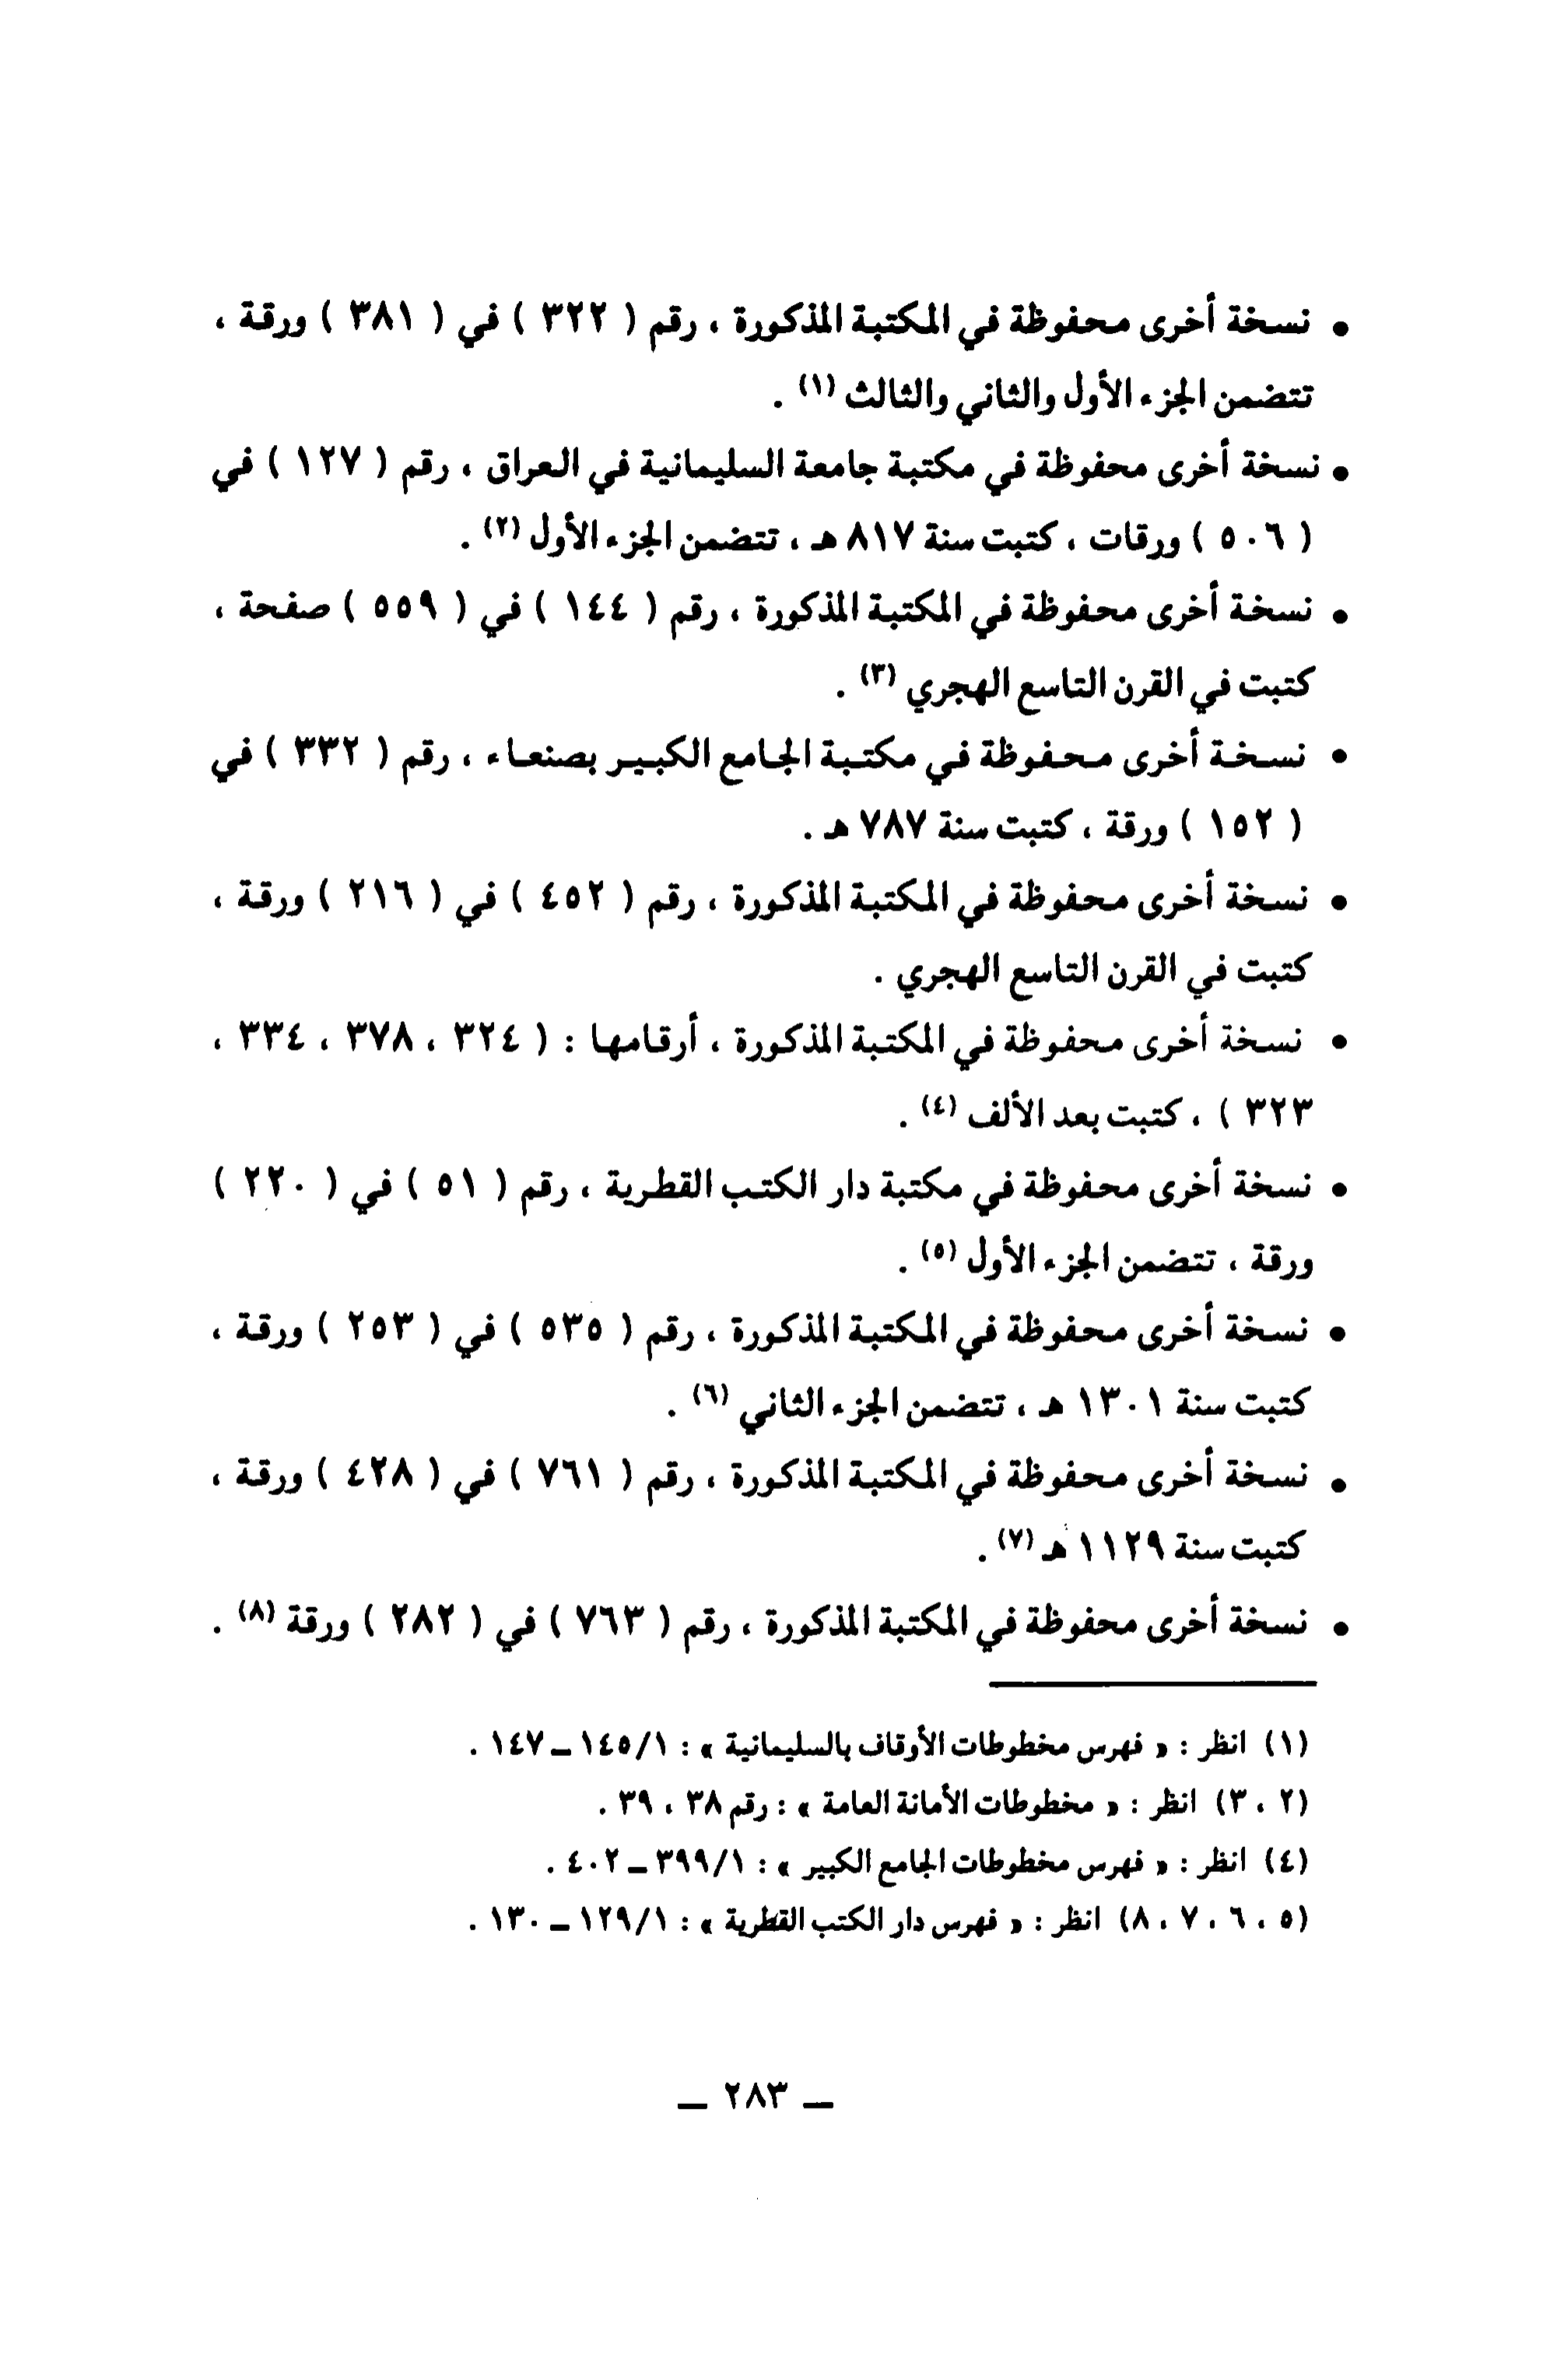 • نسخة أخرى محفوظة في المكتبة المذكورة ، رقم ( ٣٢٢ ) في ( ٣٨١ ) ورقة ،
تتضمن الجزء الأول والثاني والثالث (١) .
• نسخة أخرى محفوظة في مكتبة جامعة السليمانية في العراق ، رقم ( ١٢٧ ) في
( ٥٠٦ ) ورقات ، كتبت سنة ٨١٧ هـ ، تتضمن الجزء الأول (٢) .
• نسخة أخرى محفوظة في المكتبة المذكورة ، رقم ( ١٤٤ ) في ( ٥٥٩ ) صفحة ،
كتبت في القرن التاسع الهجري (٣) .
• نسخة أخرى محفوظة في مكتبة الجامع الكبير بصنعاء ، رقم ( ٣٣٢ ) في
( ١٥٢ ) ورقة ، كتبت سنة ٧٨٧ هـ .
• نسخة أخرى محفوظة في المكتبة المذكورة ، رقم ( ٤٥٢ ) في ( ٢١٦ ) ورقة ،
كتبت في القرن التاسع الهجري .
• نسخة أخرى محفوظة في المكتبة المذكورة ، أرقامها : ( ٣٢٤ ، ٣٧٨ ، ٣٣٤ ،
٣٢٣ ) ، كتبت بعد الألف (٤) .
• نسخة أخرى محفوظة في مكتبة دار الكتب القطرية ، رقم ( ٥١ ) في ( ٢٢٠ )
ورقة ، تتضمن الجزء الأول (٥) .
• نسخة أخرى محفوظة في المكتبة المذكورة ، رقم ( ٥٣٥ ) في ( ٢٥٣ ) ورقة ،
كتبت سنة ١٣٠١ هـ ، تتضمن الجزء الثاني (٦) .
• نسخة أخرى محفوظة في المكتبة المذكورة ، رقم ( ٧٦١ ) في ( ٤٢٨ ) ورقة ،
كتبت سنة ١١٢٩ هـ (٧) .
• نسخة أخرى محفوظة في المكتبة المذكورة ، رقم ( ٧٦٣ ) في ( ٢٨٢ ) ورقة (٨) .
(١) انظر : « فهرس مخطوطات الأوقاف بالسليمانية » : ١٤٥/١ – ١٤٧ .
(٢ ، ٣) انظر : « مخطوطات الأمانة العامة » : رقم ٣٨ ، ٣٩ .
(٤) انظر : « فهرس مخطوطات الجامع الكبير » : ٣٩٩/١ – ٤٠٢ .
(٥ ، ٦ ، ٧ ، ٨) انظر : « فهرس دار الكتب القطرية » : ١٢٩/١ – ١٣٠ .
– ٢٨٣ –